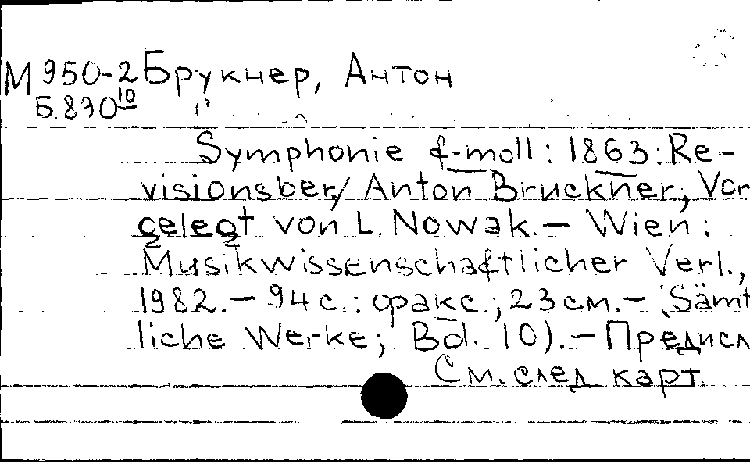 М 950-2 Брукнер, Антон
Б.890 10
Symphonie f-moll : 1863 : Re-
visionsber / Anton Bruckner; Vor
gelegt von L. Nowak. — Wien :
Musikwissenschaftlicher Verl.,
1982. — 94 с. : факс.; 23 см. — (Sämt
liche Werke; Bd. 10). — Предисл
См. след карт.